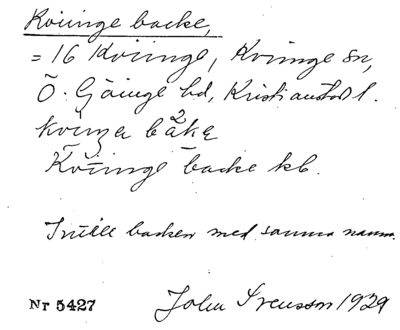 Kviinge backe,
= 16 Kviinge, Kviinge sn,
Ö. Göinge hd, Kristianstad l.
Kviinge backe kb.
Intill backen med samma namn.
Nr 5427 John 1929